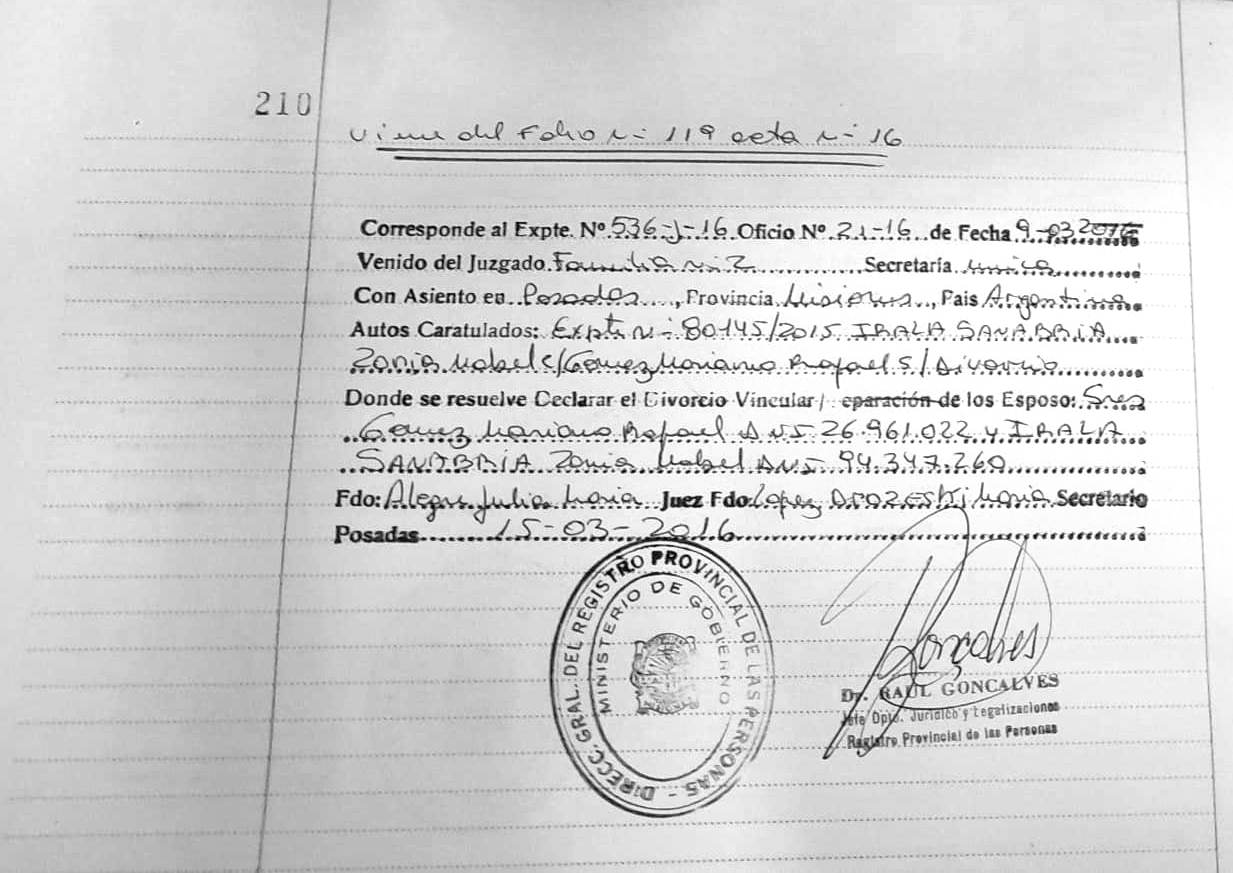 210
Viene del Folio Nº 119 acta Nº 16
Corresponde al Expte. Nº 536-J-16 Oficio Nº 21-16 de Fecha 9-03 2016
Venido del Juzgado Familia Nº 2 Secretaría única
Con Asiento en Posadas, Provincia Misiones, Pais Argentina
Autos Caratulados: Expte Nº 80145/2015 IRALA SANABRIA
Zonia Mabel c/ Gomez Mariano Rafael S/ Divorcio
Donde se resuelve Declarar el Divorcio Vincular/ eparación de los Esposo: Sres
Gomez Mariano Rafael DNI 26.961.022 y IRALA
SANABRIA Zonia Mabel DNI 94.347.260
Fdo: Alegre Julia Maria Juez Fdo: Lopez Maria Secretario
Posadas 15-03-2016
DIRECC. GRAL. DEL REGISTRO PROVINCIAL DE LAS PERSONAS -
MINISTERIO DE GOBIERNO
Dr. RAUL GONCALVES
Jefe Dpto. Jurídico y Legalizaciones
Registro Provincial de las Personas